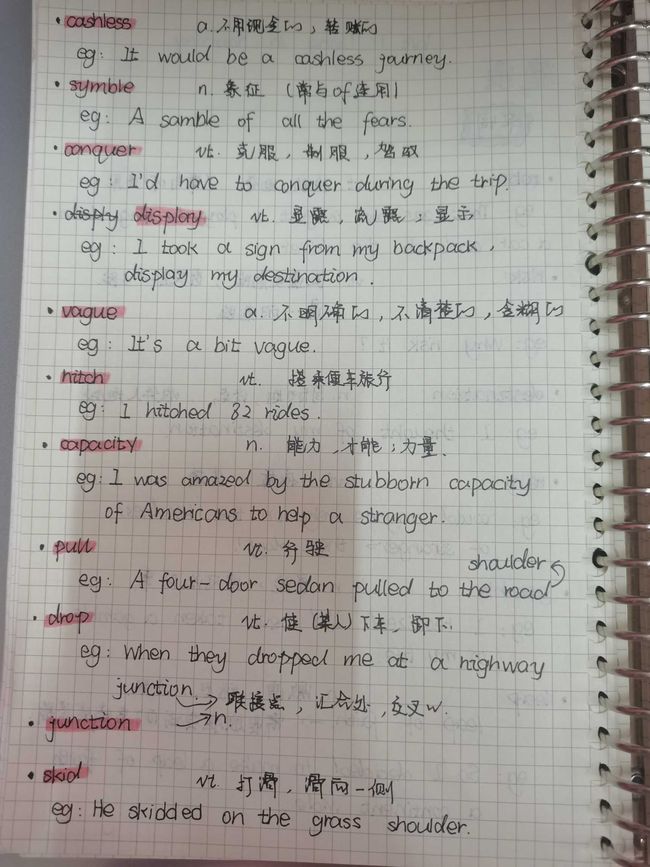 • cashless a. 不用现金的，转账的
eg: It would be a cashless journey.
• symble n. 象征（常与of连用）
eg: A samble of all the fears.
• conquer vt. 克服，制服，夺取
eg: I'd have to conquer during the trip.
• disply display vt. 显露，流露；显示
eg: I took a sign from my backpack,
display my destination.
• vague a. 不明确的，不清楚的，含糊的
eg: It's a bit vague.
• hitch vt. 搭乘便车旅行
eg: I hitched 82 rides.
• capacity n. 能力，才能；力量.
eg: I was amazed by the stubborn capacity
of Americans to help a stranger.
• pull vt. 行驶
shoulder
eg: A four-door sedan pulled to the road
• drop vt. 使（某人）下车，卸下.
eg: When they dropped me at a highway
junction. → 联接点，汇合处，交叉
• junction → n.
• skid vt. 打滑，滑向一侧
eg: He skidded on the grass shoulder.